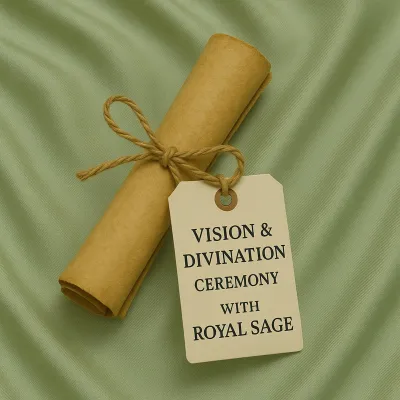 VISION &
DIVINATION
CEREMONY
WITH
ROYAL SAGE